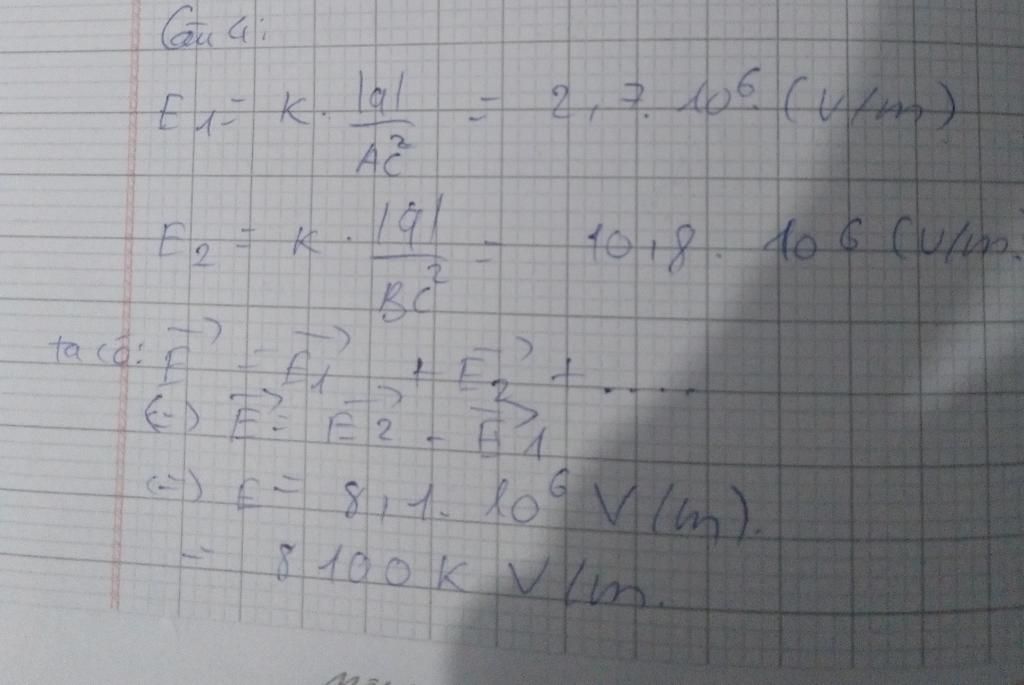 Câu 4:
E1 = K. |q| / AC² = 2,7. 10⁶ (V/m)
E2 = K. |q| / BC² = 10,8. 10 6 (V/m)
ta có: E⃗ = E⃗1 + E⃗2 + .....
(=) E⃗ = E⃗2 - E⃗1
(=) E = 8,1. 10⁶ V/m).
= 8100K V/m.